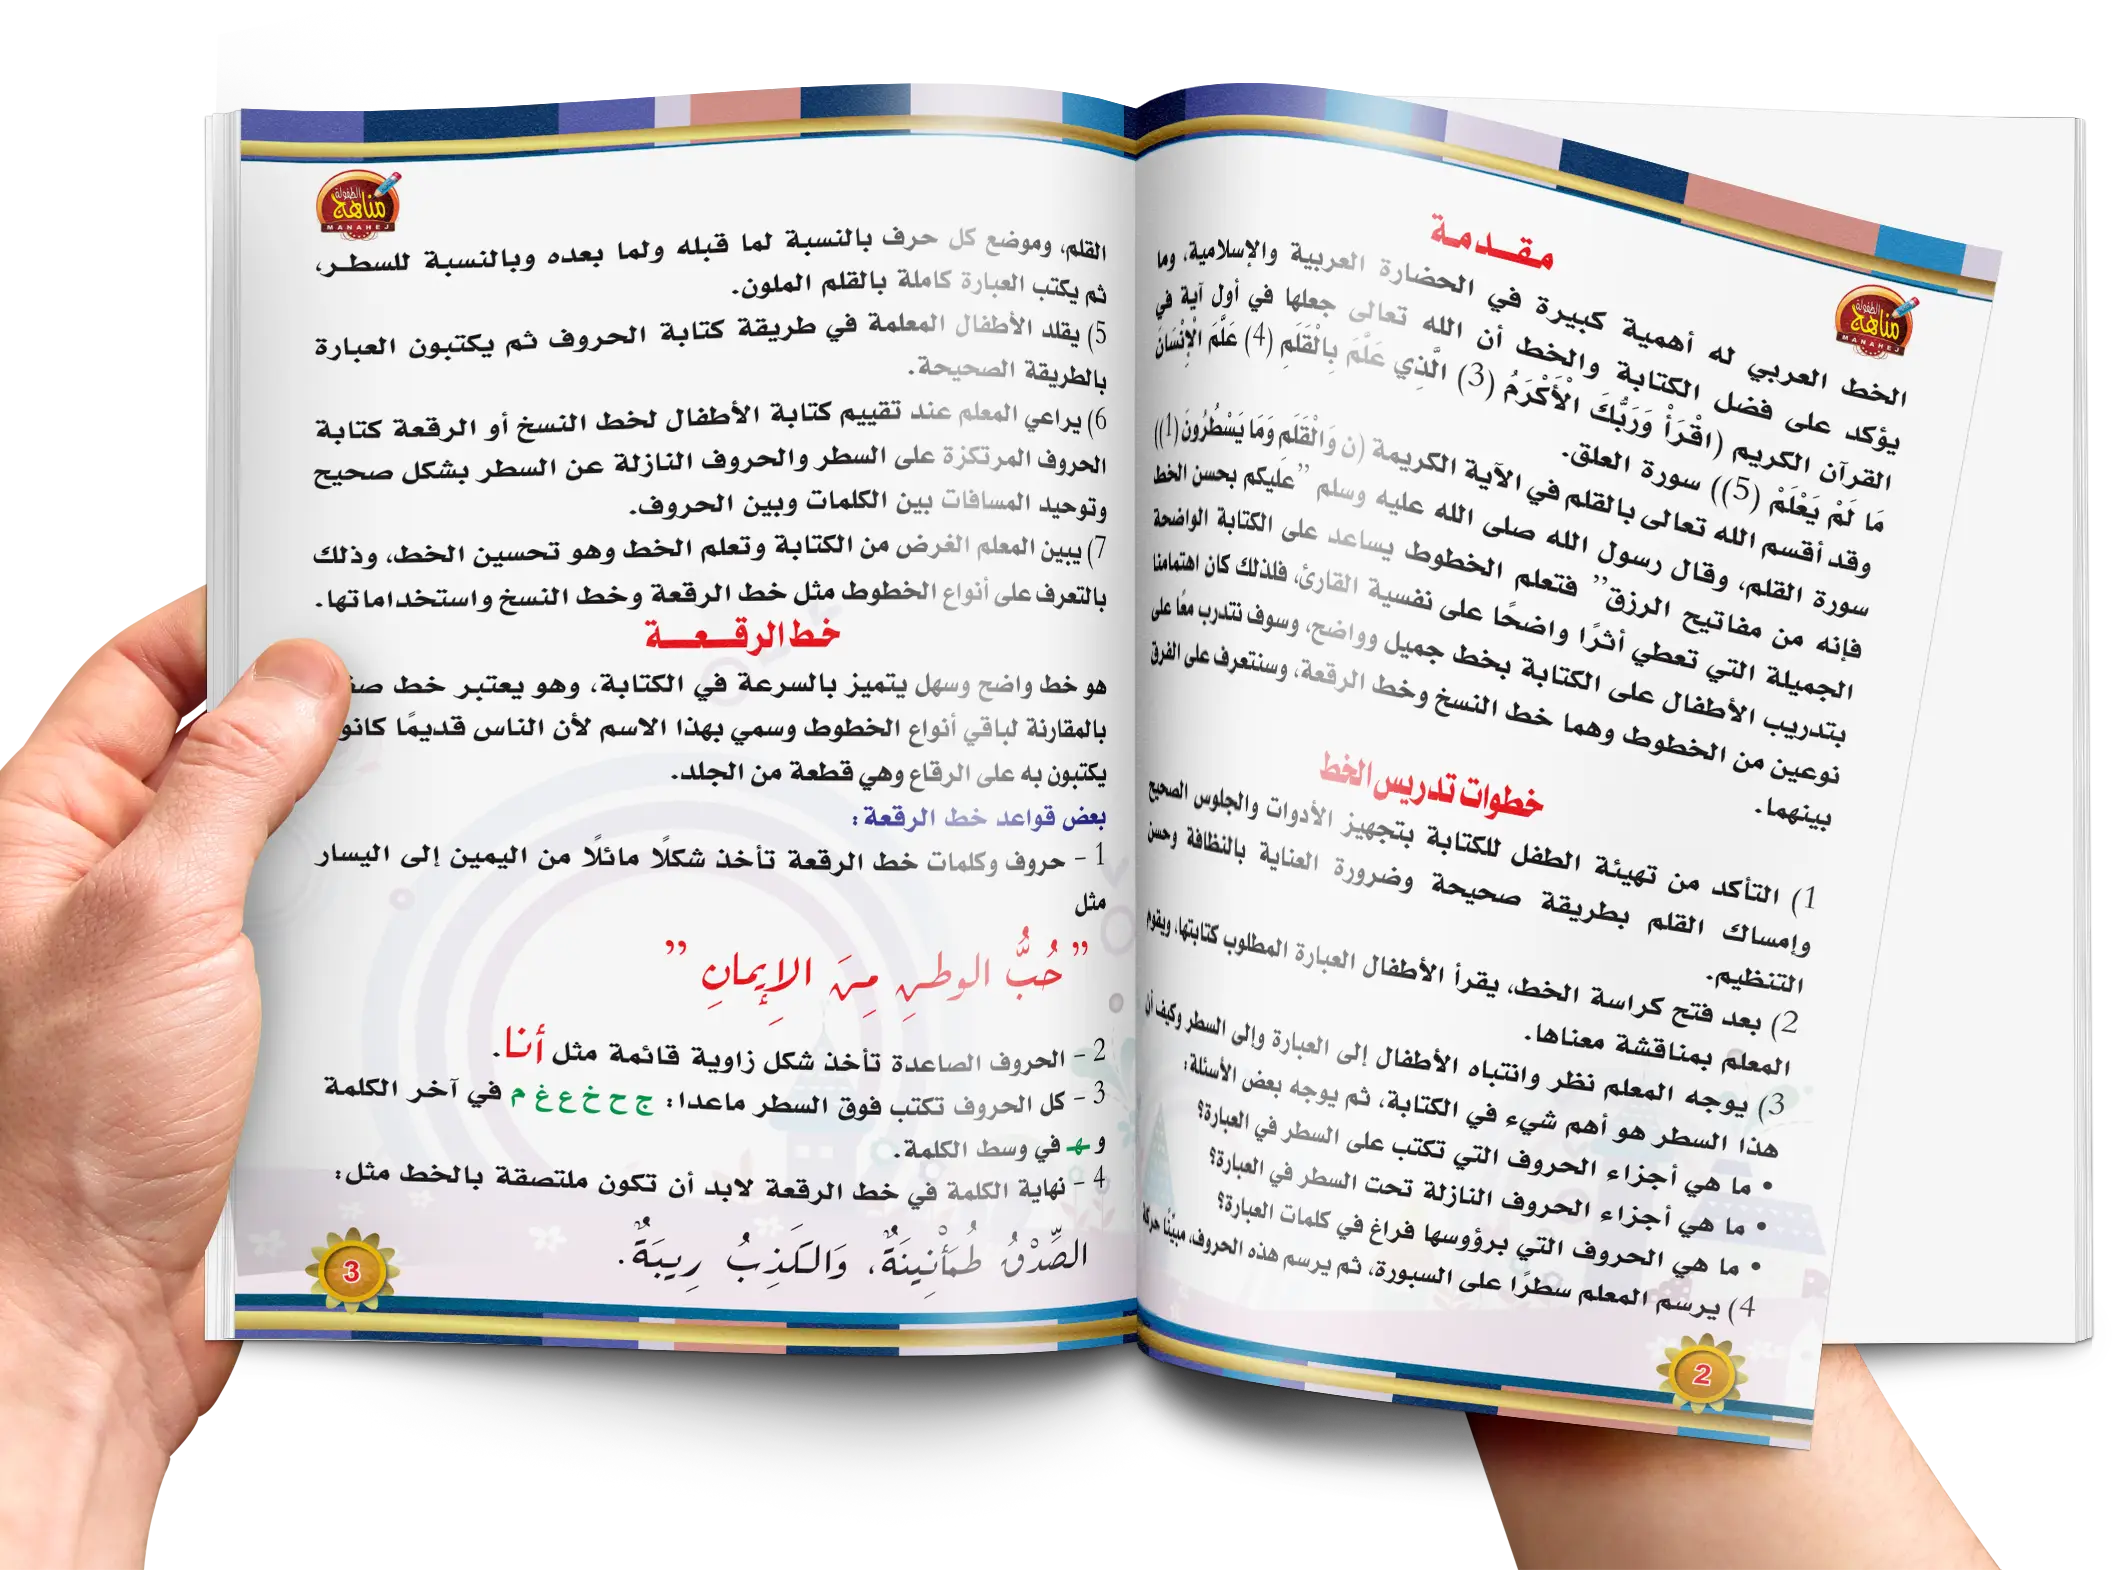 مقدمة
الخط العربي له أهمية كبيرة في الحضارة العربية والإسلامية، وما
يؤكد على فضل الكتابة والخط أن الله تعالى جعلها في أول آية في
القرآن الكريم (اقْرَأْ وَرَبُّكَ الْأَكْرَمُ (3) الَّذِي عَلَّمَ بِالْقَلَمِ (4) عَلَّمَ الْإِنْسَانَ
مَا لَمْ يَعْلَمْ (5)) سورة العلق.
وقد أقسم الله تعالى بالقلم في الآية الكريمة (ن وَالْقَلَمِ وَمَا يَسْطُرُونَ (1))
سورة القلم، وقال رسول الله صلى الله عليه وسلم "عليكم بحسن الخط
فإنه من مفاتيح الرزق" فتعلم الخطوط يساعد على الكتابة الواضحة
الجميلة التي تعطي أثرًا واضحًا على نفسية القارئ، فلذلك كان اهتمامنا
بتدريب الأطفال على الكتابة بخط جميل وواضح، وسوف نتدرب معًا على
نوعين من الخطوط وهما خط النسخ وخط الرقعة، وسنتعرف على الفرق
بينهما.
خطوات تدريس الخط
1) التأكد من تهيئة الطفل للكتابة بتجهيز الأدوات والجلوس الصحيح
وإمساك القلم بطريقة صحيحة وضرورة العناية بالنظافة وحسن
التنظيم.
2) بعد فتح كراسة الخط، يقرأ الأطفال العبارة المطلوب كتابتها، ويقوم
المعلم بمناقشة معناها.
3) يوجه المعلم نظر وانتباه الأطفال إلى العبارة وإلى السطر وكيف أن
هذا السطر هو أهم شيء في الكتابة، ثم يوجه بعض الأسئلة:
• ما هي أجزاء الحروف التي تكتب على السطر في العبارة؟
• ما هي أجزاء الحروف النازلة تحت السطر في العبارة؟
• ما هي الحروف التي برؤوسها فراغ في كلمات العبارة؟
4) يرسم المعلم سطرًا على السبورة، ثم يرسم هذه الحروف، مبيّنًا حركة
2
مناهج الطفولة
MANAHEJ
القلم، وموضع كل حرف بالنسبة لما قبله ولما بعده وبالنسبة للسطر،
ثم يكتب العبارة كاملة بالقلم الملون.
5) يقلد الأطفال المعلمة في طريقة كتابة الحروف ثم يكتبون العبارة
بالطريقة الصحيحة.
6) يراعي المعلم عند تقييم كتابة الأطفال لخط النسخ أو الرقعة كتابة
الحروف المرتكزة على السطر والحروف النازلة عن السطر بشكل صحيح
وتوحيد المسافات بين الكلمات وبين الحروف.
7) يبين المعلم الغرض من الكتابة وتعلم الخط وهو تحسين الخط، وذلك
بالتعرف على أنواع الخطوط مثل خط الرقعة وخط النسخ واستخداماتها.
خط الرقعة
هو خط واضح وسهل يتميز بالسرعة في الكتابة، وهو يعتبر خط
بالمقارنة لباقي أنواع الخطوط وسمي بهذا الاسم لأن الناس قديمًا كانو
يكتبون به على الرقاع وهي قطعة من الجلد.
بعض قواعد خط الرقعة:
1 - حروف وكلمات خط الرقعة تأخذ شكلًا مائلًا من اليمين إلى اليسار
مثل
" حُبُّ الوطنِ مِنَ الإِيمانِ "
2 - الحروف الصاعدة تأخذ شكل زاوية قائمة مثل أنا.
3 - كل الحروف تكتب فوق السطر ماعدا: ج ح خ ع غ م في آخر الكلمة
و ـهـ في وسط الكلمة.
4 - نهاية الكلمة في خط الرقعة لابد أن تكون ملتصقة بالخط مثل:
الصِّدْقُ طُمَأْنِينَةٌ، وَالكَذِبُ رِيبَةٌ.
3
مناهج الطفولة
MANAHEJ